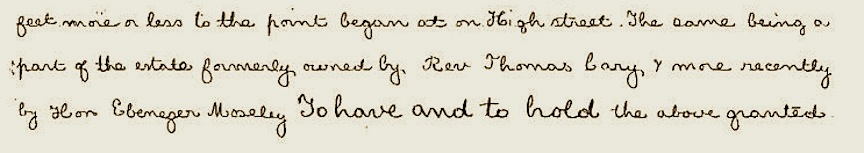 feet more or less to the point began at on High street. The same being a
part of the estate formerly owned by Rev Thomas Cary, & more recently
by Hon Ebenezer Moseley To have and to hold the above granted